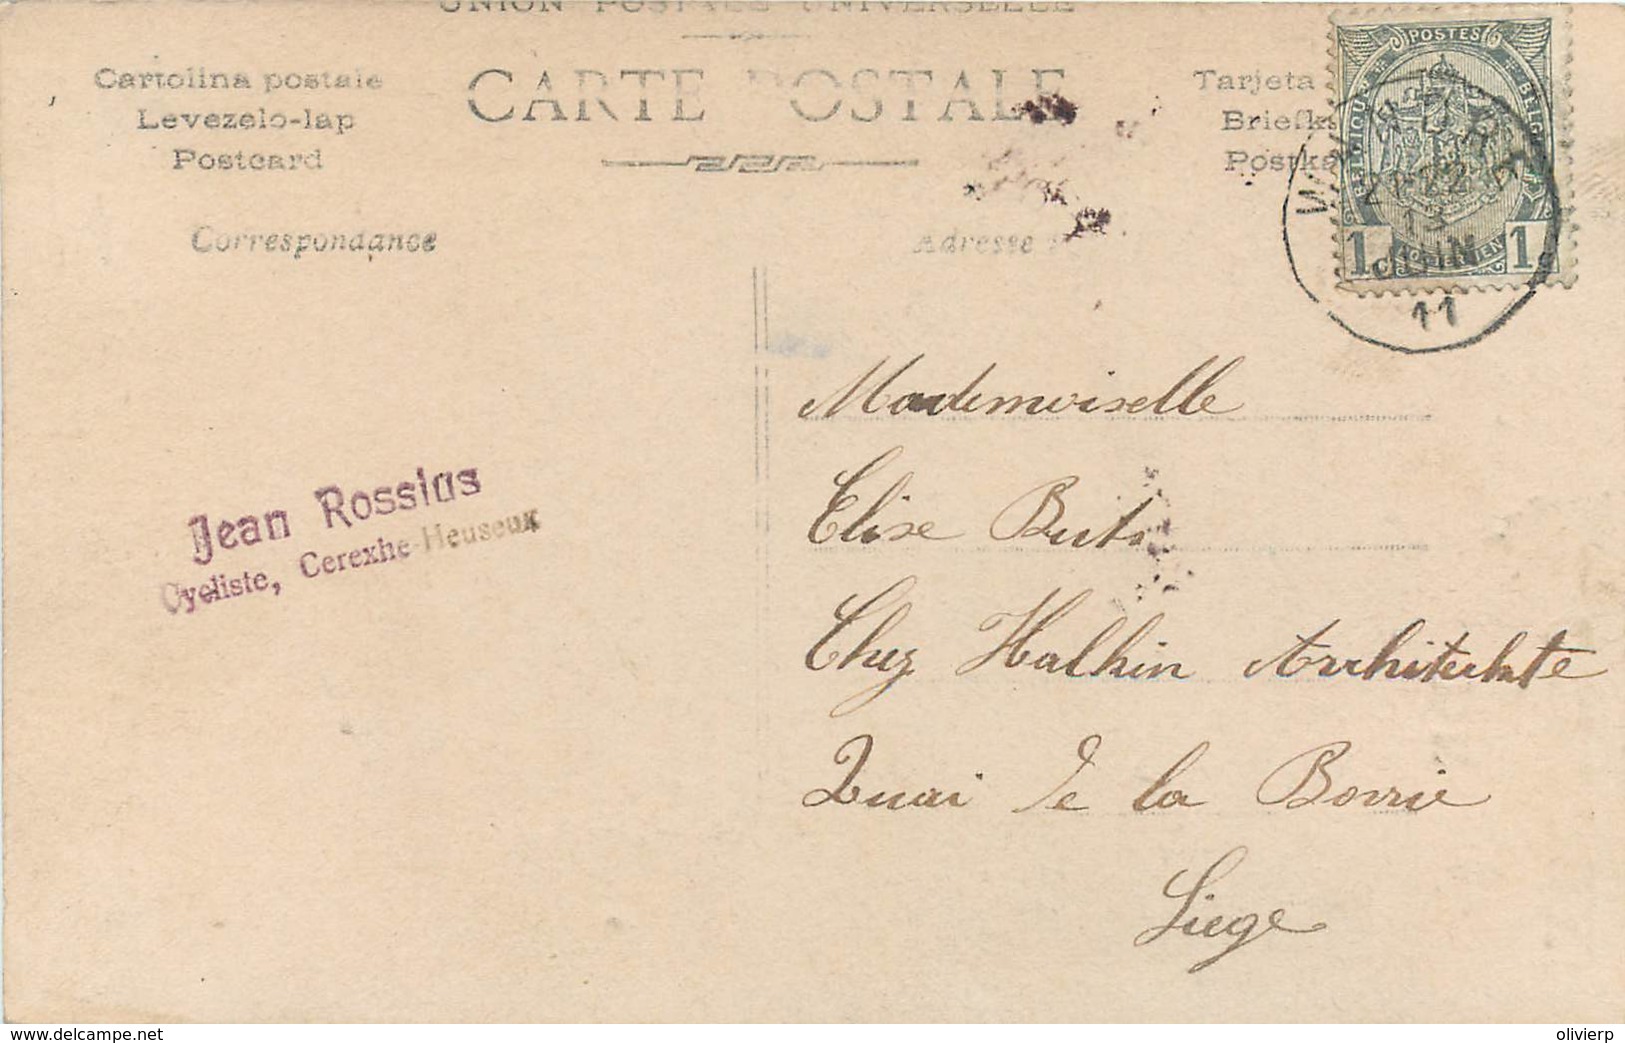 UNION POSTALE UNIVERSELLE
CARTE POSTALE
Cartolina postale
Levezelo-lap
Postcard
Tarjeta
Briefk
Postka
Correspondance
Adresse
POSTES
1 1
13
JUIN
11
Mademoiselle
Elise Buts
Chez Halkin Architekte
Quai de la Bovrie
Liege
Jean Rossius
Cycliste, Cerexhe-Heuseux
www.delcampe.net
olivierp